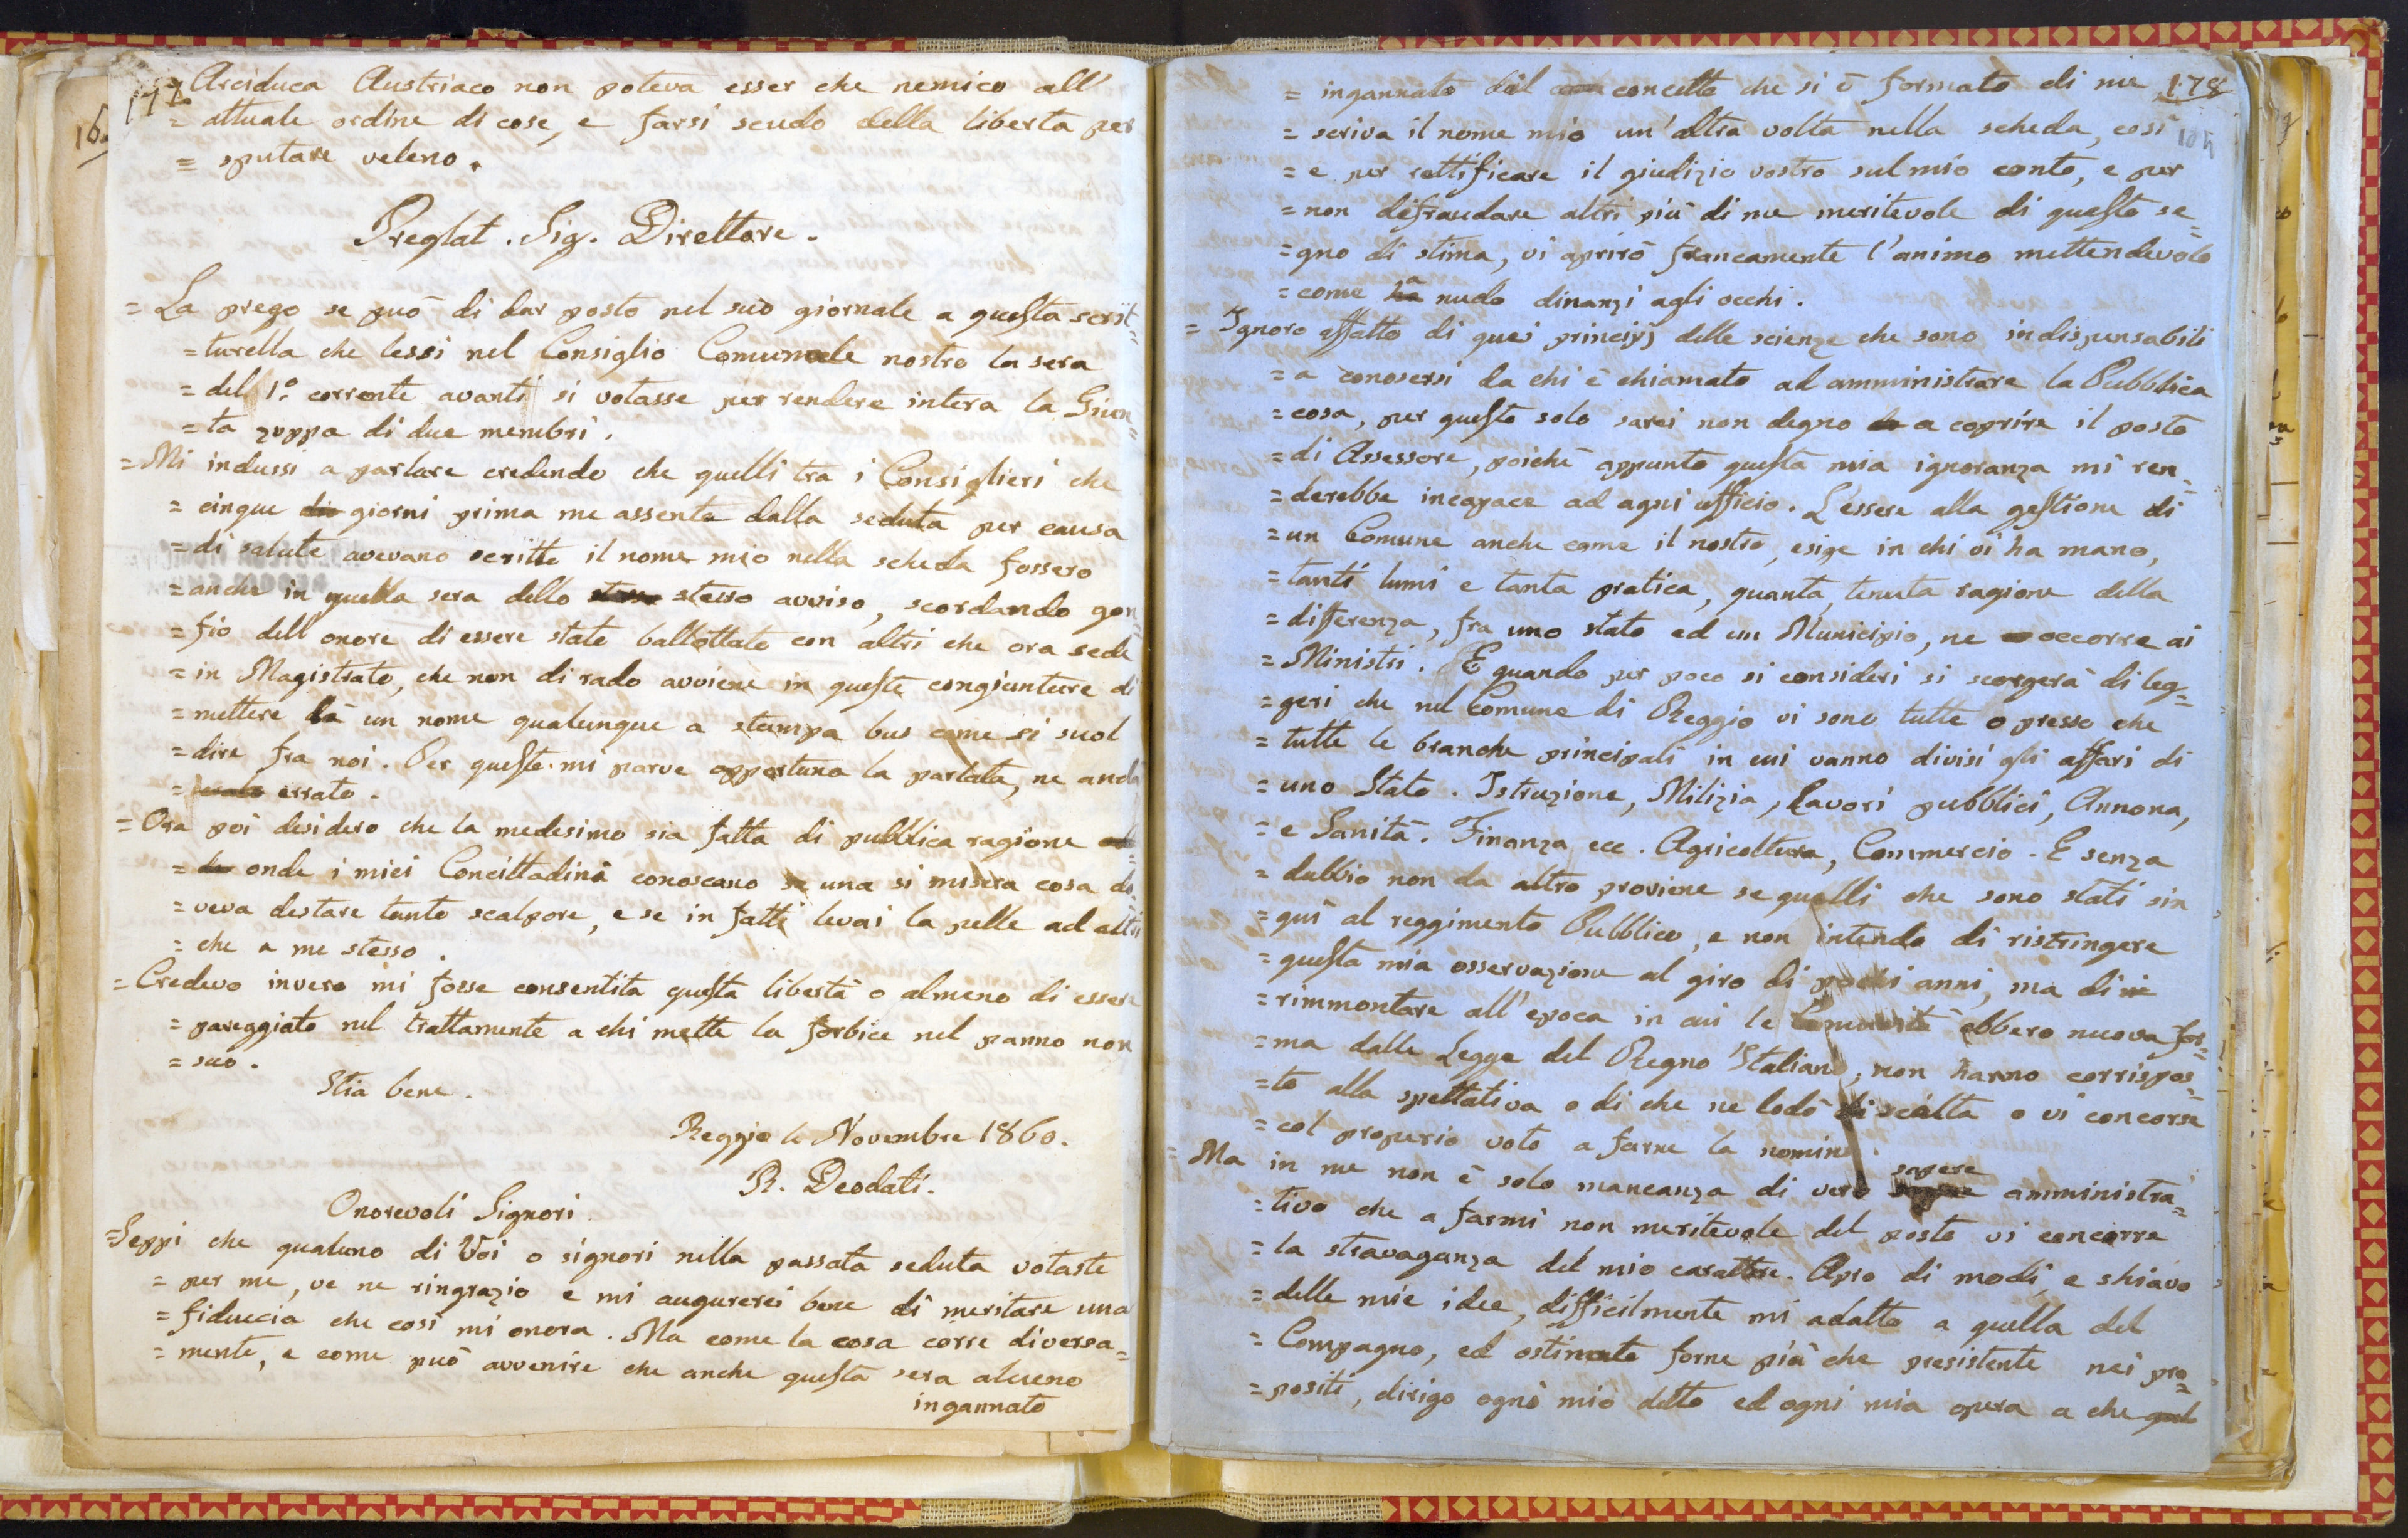 177
= Arciduca Austriaco non poteva esser che nemico all'
= attuale ordine di cose, e farsi scudo della liberta per
= sputare veleno.
Preglat. Sig. Direttore.
= La prego se può di dar posto nel suo giornale a questa scrit=
= turella che lessi nel Consiglio Comunale nostro la sera
= del 1º corrente avanti si votasse per rendere intera la Giun=
= ta zoppa di due membri.
= Mi indussi a parlare credendo che quelli tra i Consiglieri che
= cinque giorni prima me assente dalla seduta per causa
= di salute avevano scritto il nome mio nella scheda fossero
= anche in quella sera dello stesso stesso avviso, scordando gon
= fio dell'onore di essere stato ballottato con altri che ora sede
= in Magistrato, che non di rado avviene in queste congiunture di
= mettere là un nome qualunque a stampa bus come si suol
= dire fra noi. Per questo mi parve opportuna la parlata, ne anda
= errato.
= Ora poi desidero che la medesimo sia fatta di pubblica ragione
= onde i miei Concittadini conoscano se una si misera cosa do=
= veva destare tanto scalpore, e se in fatti levai la pelle ad altri
= che a me stesso.
= Credevo invero mi fosse consentita questa libertà o almeno di essere
= pareggiato nel trattamente a chi mette la forbice nel panno non
= suo.
Stia bene.
Reggio li Novembre 1860.
R. Deodati.
Onorevoli Signori
= Seppi che qualuno di Voi o signori nella passata seduta votaste
= per me, ve ne ringrazio e mi augurerei bene di meritare una
= fiduccia che così mi onora. Ma come la cosa corre diversa=
= mente, e come può avvenire che anche questa sera alcuno
ingannato
178
= ingannato dal concetto che si è formato di me,
= scriva il nome mio un'altra volta nella scheda, così
104
= e per rettificare il giudizio vostro sul mio conto, e per
= non defraudare altri più di me meritevole di questo se=
= gno di stima, vi aprirò francamente l'animo mettendevolo
= come a nudo dinanzi agli occhi.
= Ignoro affatto di quei principj delle scienze che sono indispensabili
= a conosersi da chi è chiamato ad amministrare la Pubblica
= cosa, per questo solo sarei non degno a coprire il posto
= di Assessore, poichè appunto questa mia ignoranza mi ren=
= derebbe incapace ad agni ufficio. L'essere alla gestione di
= un Comune anche come il nostro, esige in chi vi ha mano,
= tanti lumi e tanta pratica, quanta, tenuta ragione della
= differenza, fra uno stato ed un Municipio, ne occorre ai
= Ministri. E quando per poco si consideri si scorgerà di leg=
= geri che nel Comune di Reggio vi sono tutte o presso che
= tutte le branche principali in cui vanno divisi gli affari di
= uno Stato. Istruzione, Milizia, Lavori pubblici, Annona,
= e Sanità. Finanza ecc. Agricoltura, Commercio. E senza
= dubbio non da altro proviene se quelli che sono stati sin
= quì al reggimento Pubblico, e non intendo di ristringere
= questa mia osservazione al giro di pochi anni, ma di
= rimmontare all'epoca in cui le Comunità ebbero nuova for=
= ma dalle Legge del Regno Italiano, non hanno corrispos=
= to alla spettativa o di che ne lodò scelta o vi concorse
= col proprio voto a farne la nomina.
= Ma in me non è solo mancanza di vero sapere amministra=
= tivo che a farmi non meritevole del posto vi concorre
= la stravaganza del mio carattere. Apro di modi, e shiavo
= delle mie idee, difficilmente mi adatto a quella del
= Compagno, ed ostinato forne più che presistente nei pro=
= positi, dirigo ogni mio detto ed ogni mia opera a che